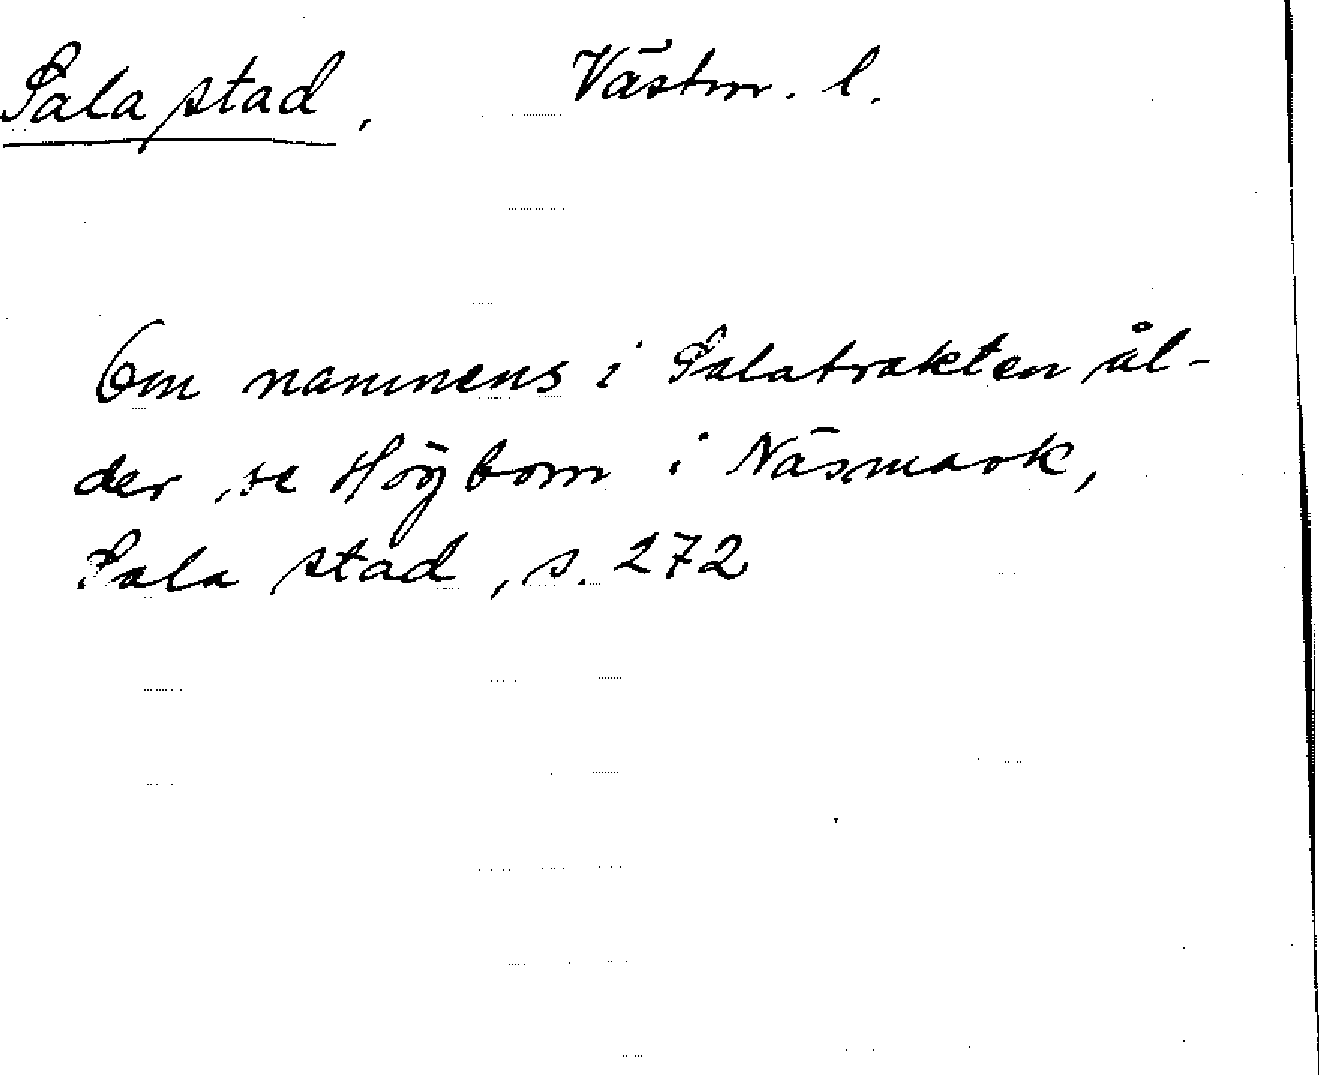 Sala stad, Västm. l.
Om namnens i Salatrakten ål-
der, se Högbom i Näsmark,
Sala stad, s. 272